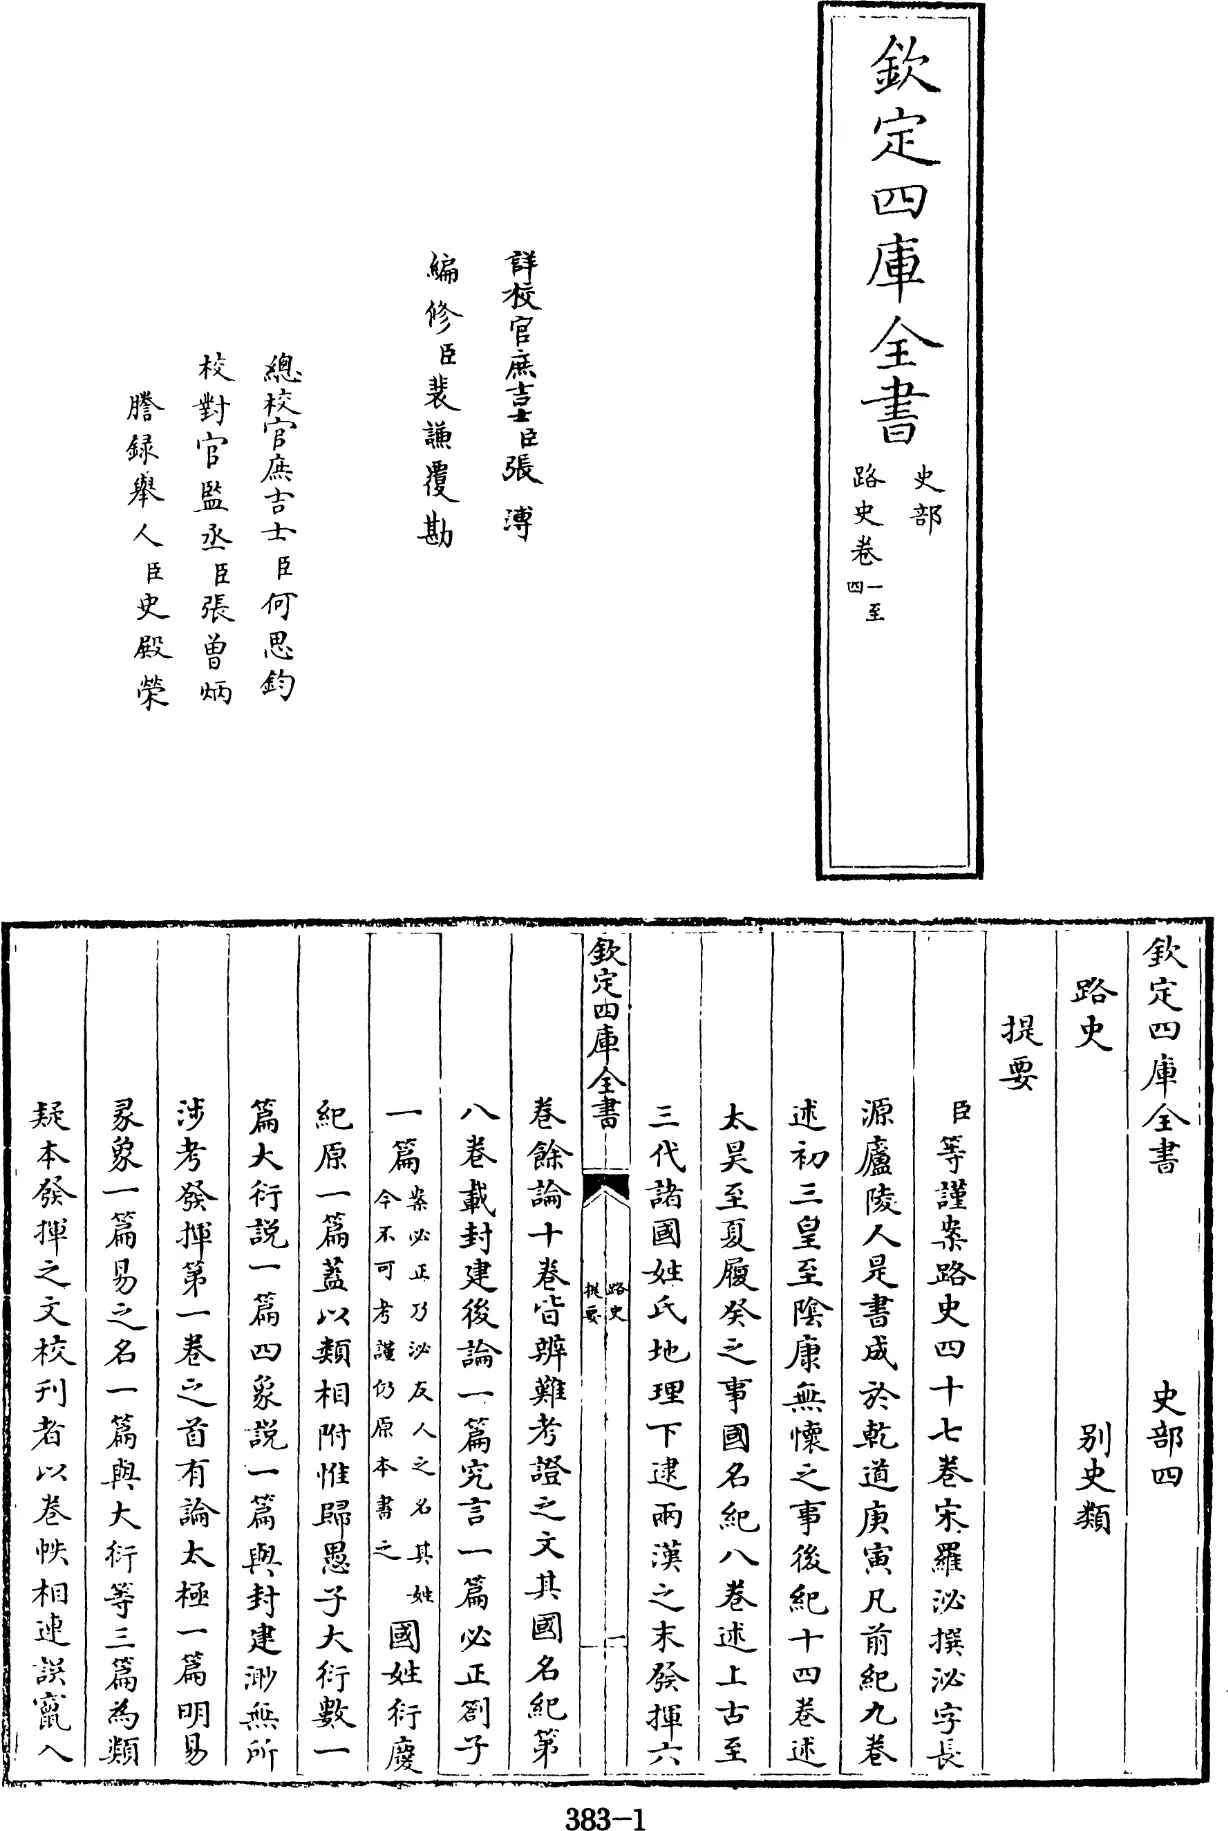 欽定四庫全書
史部
路史卷一至四
詳校官庶吉士臣張溥
編修臣裴謙覆勘
總校官庶吉士臣何思鈞
校對官監丞臣張曾炳
謄録舉人臣史殿榮
欽定四庫全書 史部四
路史 别史類
提要
臣等謹案路史四十七卷宋羅泌撰泌字長
源廬陵人是書成於乾道庚寅凡前紀九卷
述初三皇至隂康無懷之事後紀十四卷述
太昊至夏履癸之事國名紀八卷述上古至
三代諸國姓氏地理下逮兩漢之末發揮六
欽定四庫全書 路史 提要 一
卷餘論十卷皆辨難考證之文其國名紀第
八卷載封建後論一篇究言一篇必正劄子
一篇案必正乃泌友人之名其姓今不可考謹仍原本書之國姓衍慶
紀原一篇葢以類相附惟歸愚子大衍數一
篇大衍説一篇四象説一篇與封建渺無所
涉考發揮第一卷之首有論太極一篇明易
彖象一篇易之名一篇與大衍等三篇為類
疑本發揮之文校刊者以卷帙相連誤竄入
383-1